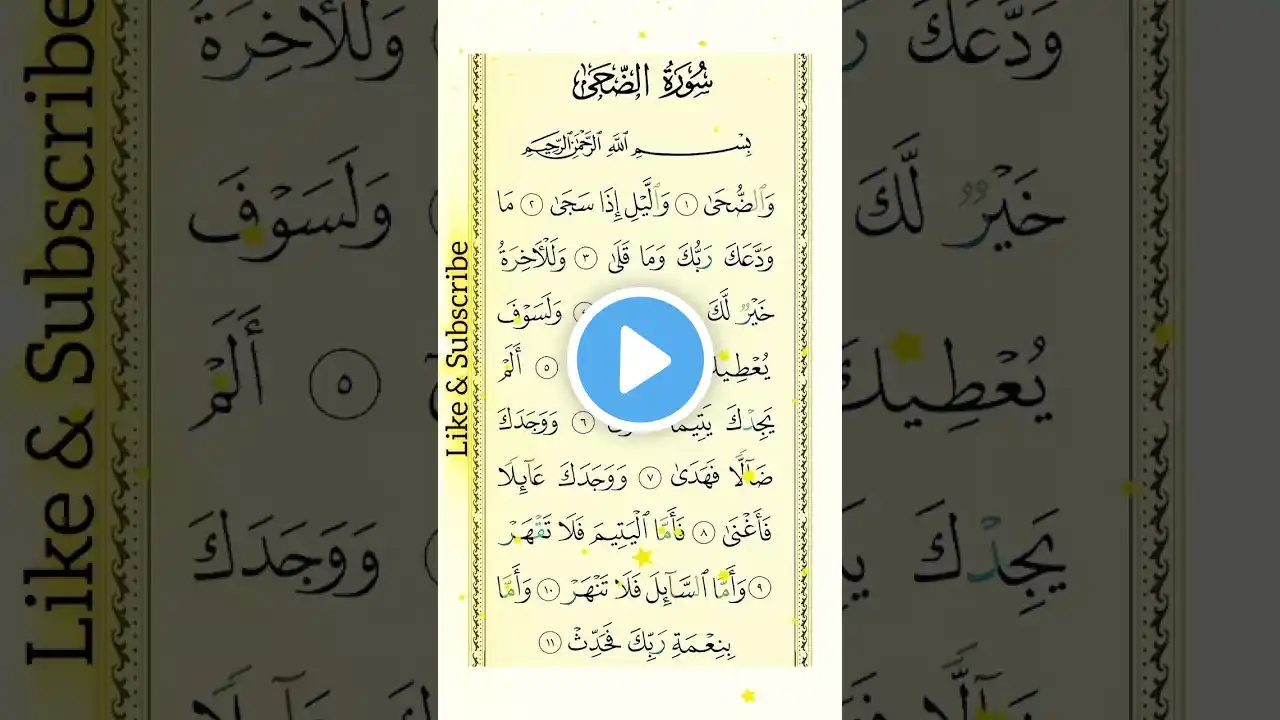 سُورَةُ الضُّحَىٰ
بِسْمِ ٱللَّهِ ٱلرَّحْمَٰنِ ٱلرَّحِيمِ
وَٱلضُّحَىٰ ١ وَٱلَّيْلِ إِذَا سَجَىٰ ٢ مَا
وَدَّعَكَ رَبُّكَ وَمَا قَلَىٰ ٣ وَلَلْأَخِرَةُ
خَيْرٌ لَّكَ وَلَسَوْفَ
يُعْطِيكَ ٥ أَلَمْ
يَجِدْكَ يَتِيمًا ٦ وَوَجَدَكَ
ضَآلًّا فَهَدَىٰ ٧ وَوَجَدَكَ عَآئِلًا
فَأَغْنَىٰ ٨ فَأَمَّا ٱلْيَتِيمَ فَلَا تَقْهَرْ
٩ وَأَمَّا ٱلسَّآئِلَ فَلَا تَنْهَرْ ١٠ وَأَمَّا
بِنِعْمَةِ رَبِّكَ فَحَدِّثْ ١١
Like & Subscribe
وَدَّعَكَ
وَلَلْأَخِرَةُ
خَيْرٌ لَّكَ
وَلَسَوْفَ
يُعْطِيكَ
٥ أَلَمْ
يَجِدْكَ
وَوَجَدَكَ
Like & Subscribe